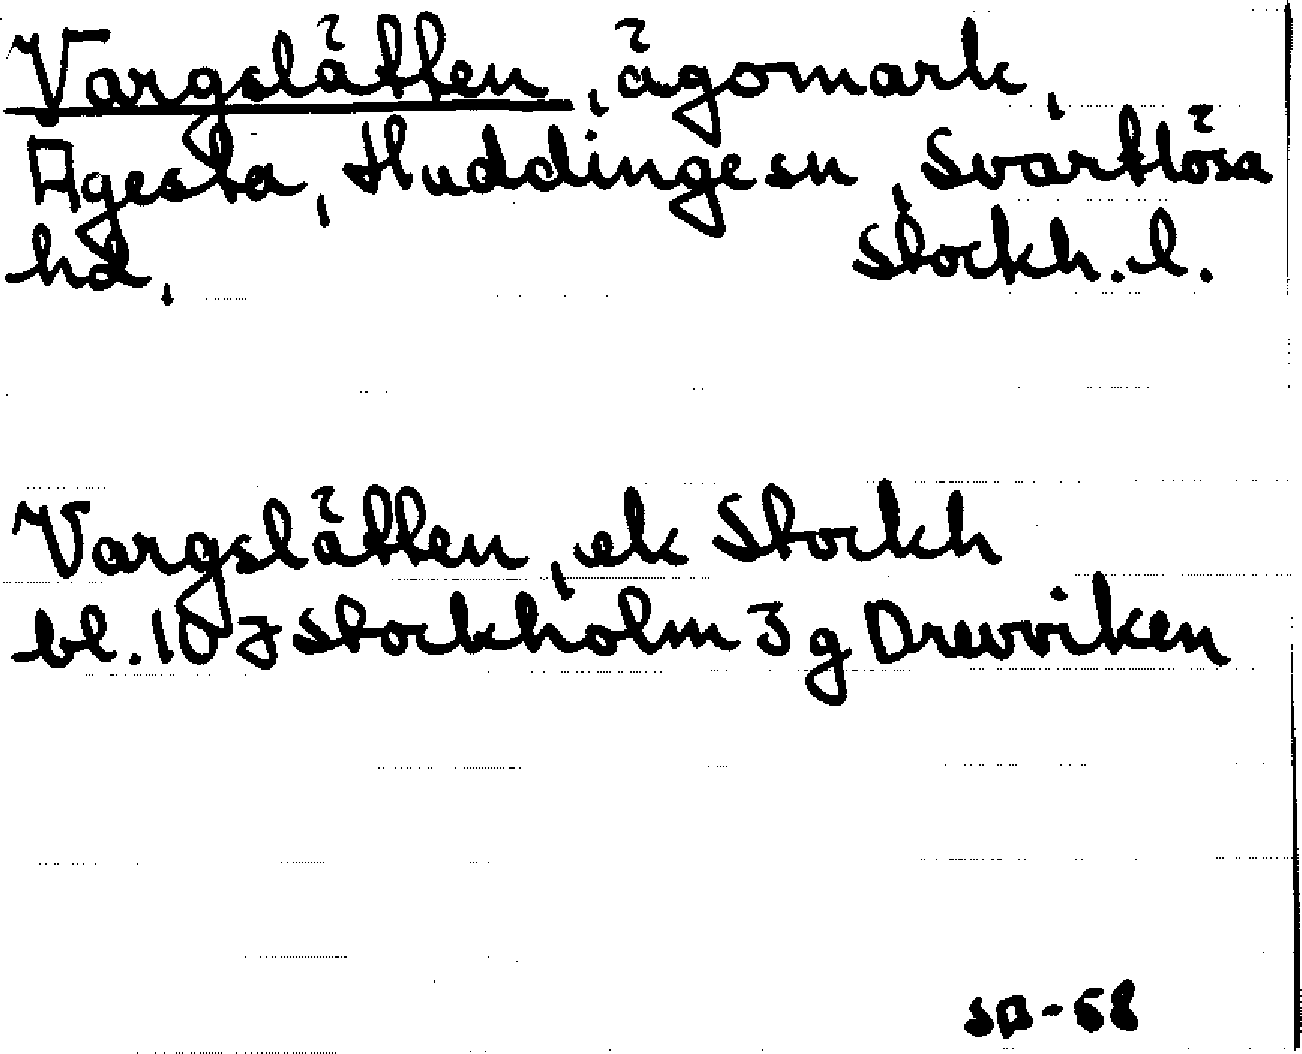 Vargslätten, ägomark,
Ågesta, Huddinge sn, Svartlösa
hd, Stockh. l.
Vargslätten, ek Stockh
bl. 10 J Stockholm 3 g Drevviken
SA-68